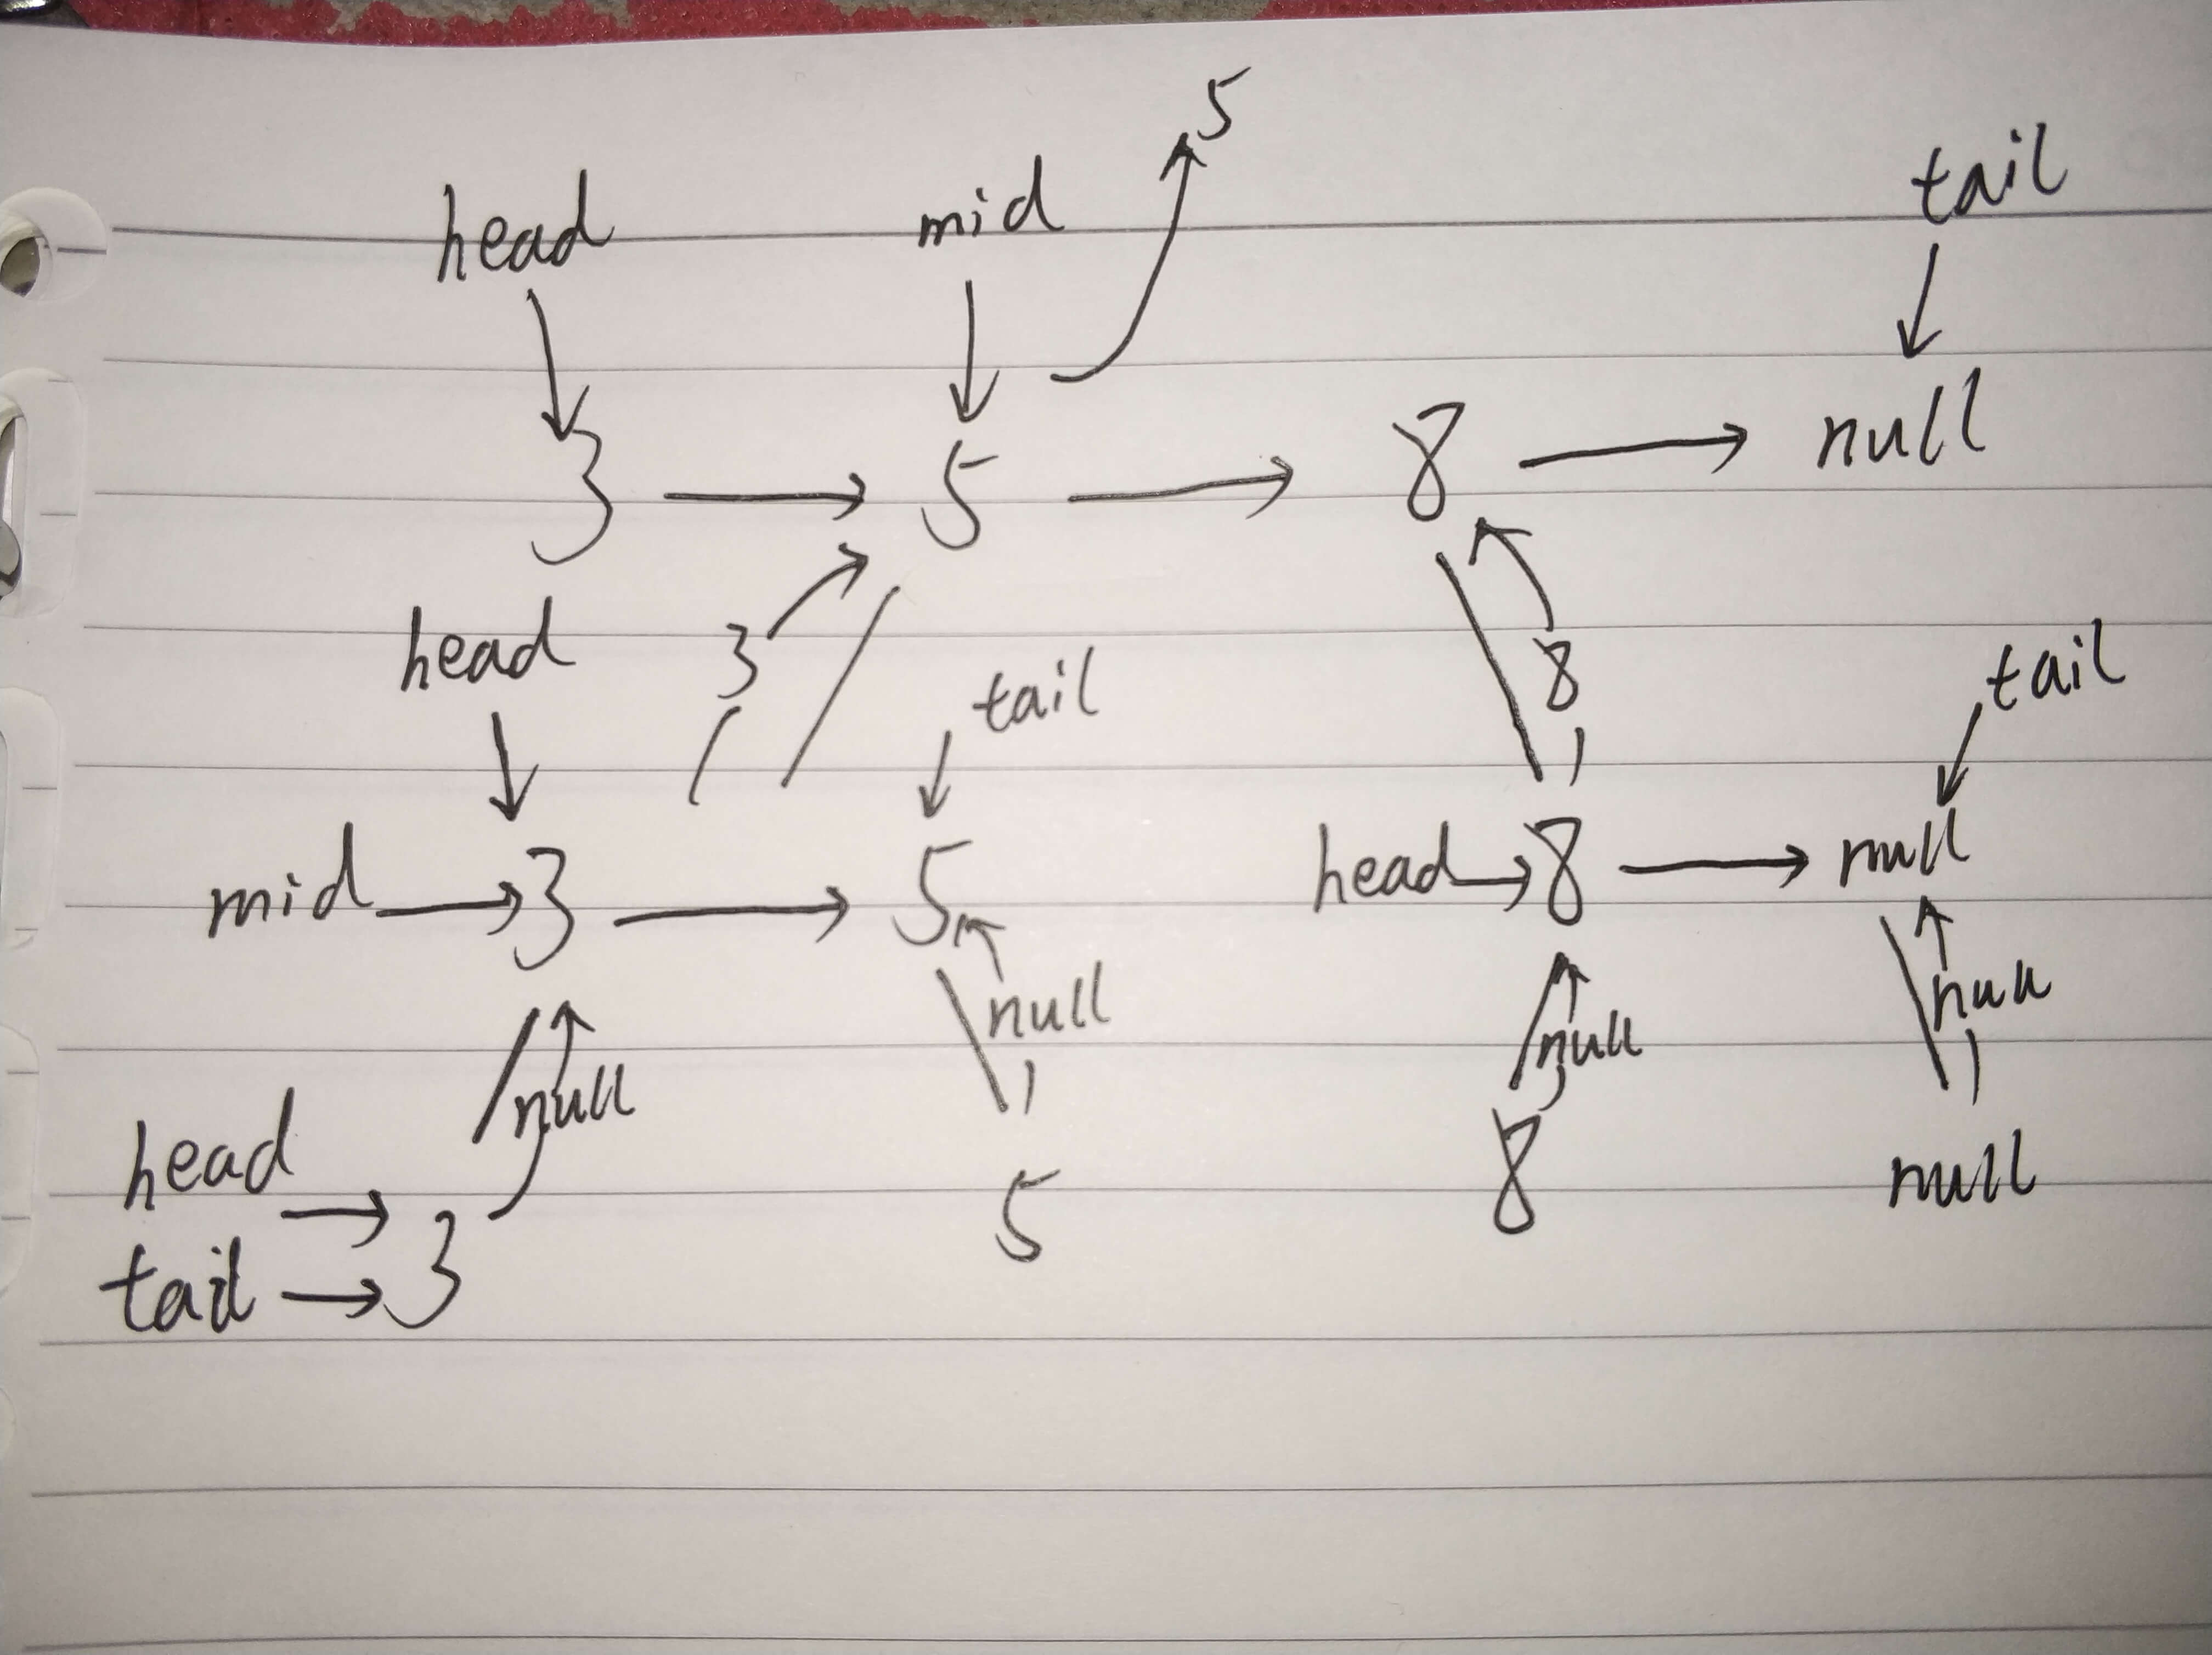 5
head mid tail
3 → 5 → 8 → null
head 3 tail 8 tail
mid → 3 → 5 head → 8 → null
null null null null
head → 3 5 8 null
tail →